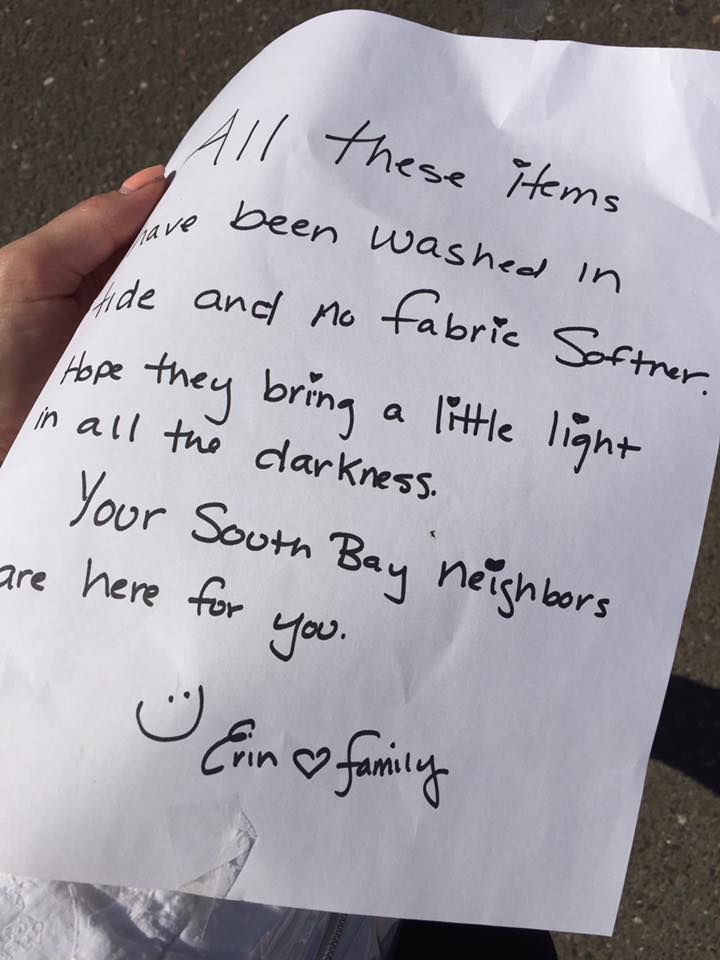 All these items
have been washed in
tide and no fabric Softner.
Hope they bring a little light
in all the darkness.
Your South Bay neighbors
are here for you.
Erin ♡ family